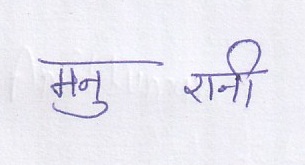 मनु रानी